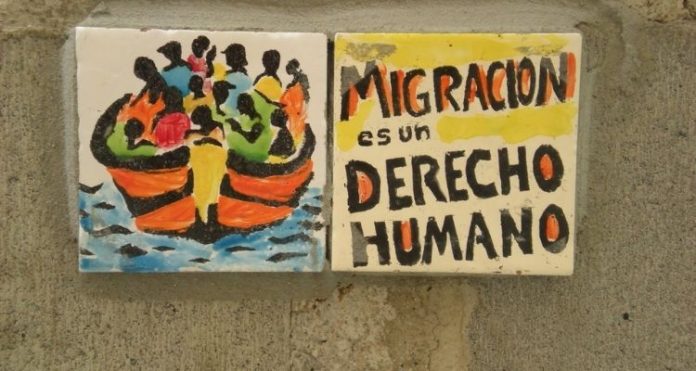 MIGRACION
es un
DERECHO
HUMANO